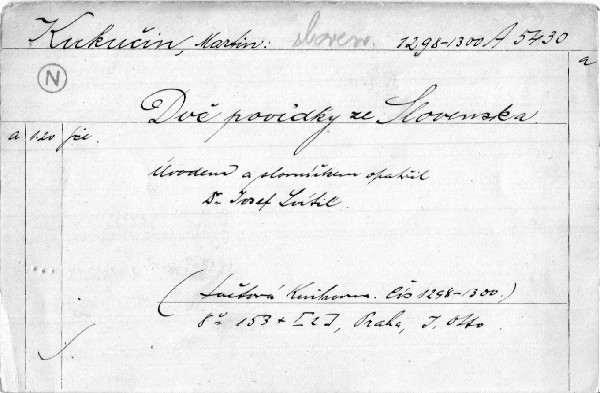 Kukučín, Martin: sloven. 1298-1300 A 5430
a
N
Dvě povídky ze Slovenska.
a 120
Úvodem a slovníčkem opatřil
Dr. Josef
(Světová Knihovna. Čís 1298-1300.)
8° 153 + [2], Praha, J. Otto.